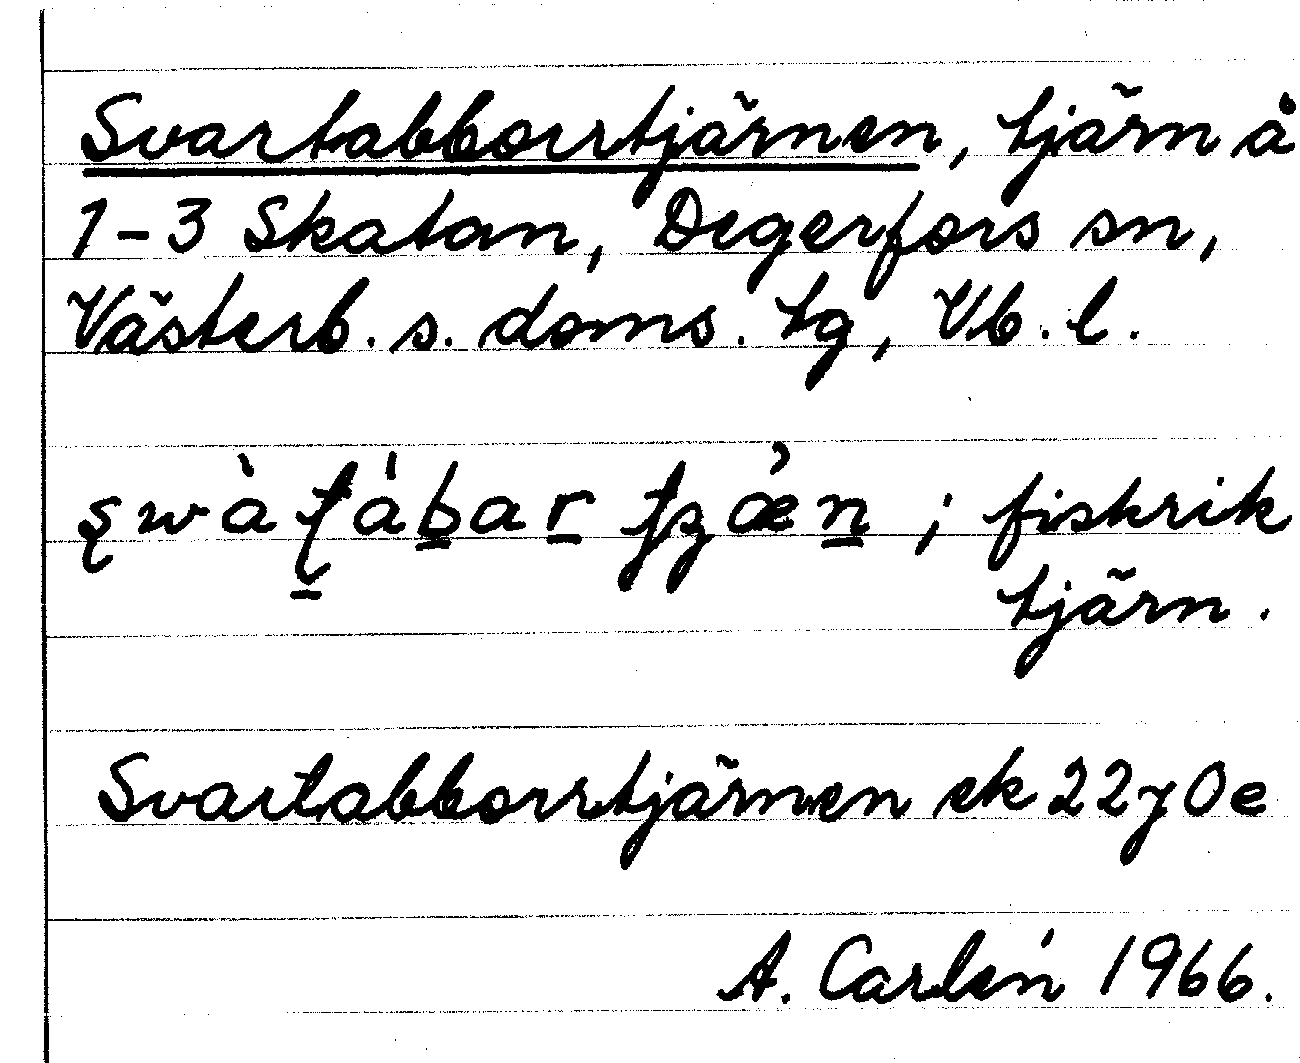 Svartabborrtjärnen, tjärn å
1-3 Skatan, Degerfors sn,
Västerb. s. doms. tg, Vb. l.
; fiskrik
tjärn.
Svartabborrtjärnen ek 22y0e
A. Carlén 1966.